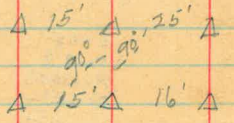 15' 25'
90° 90°
15' 16'